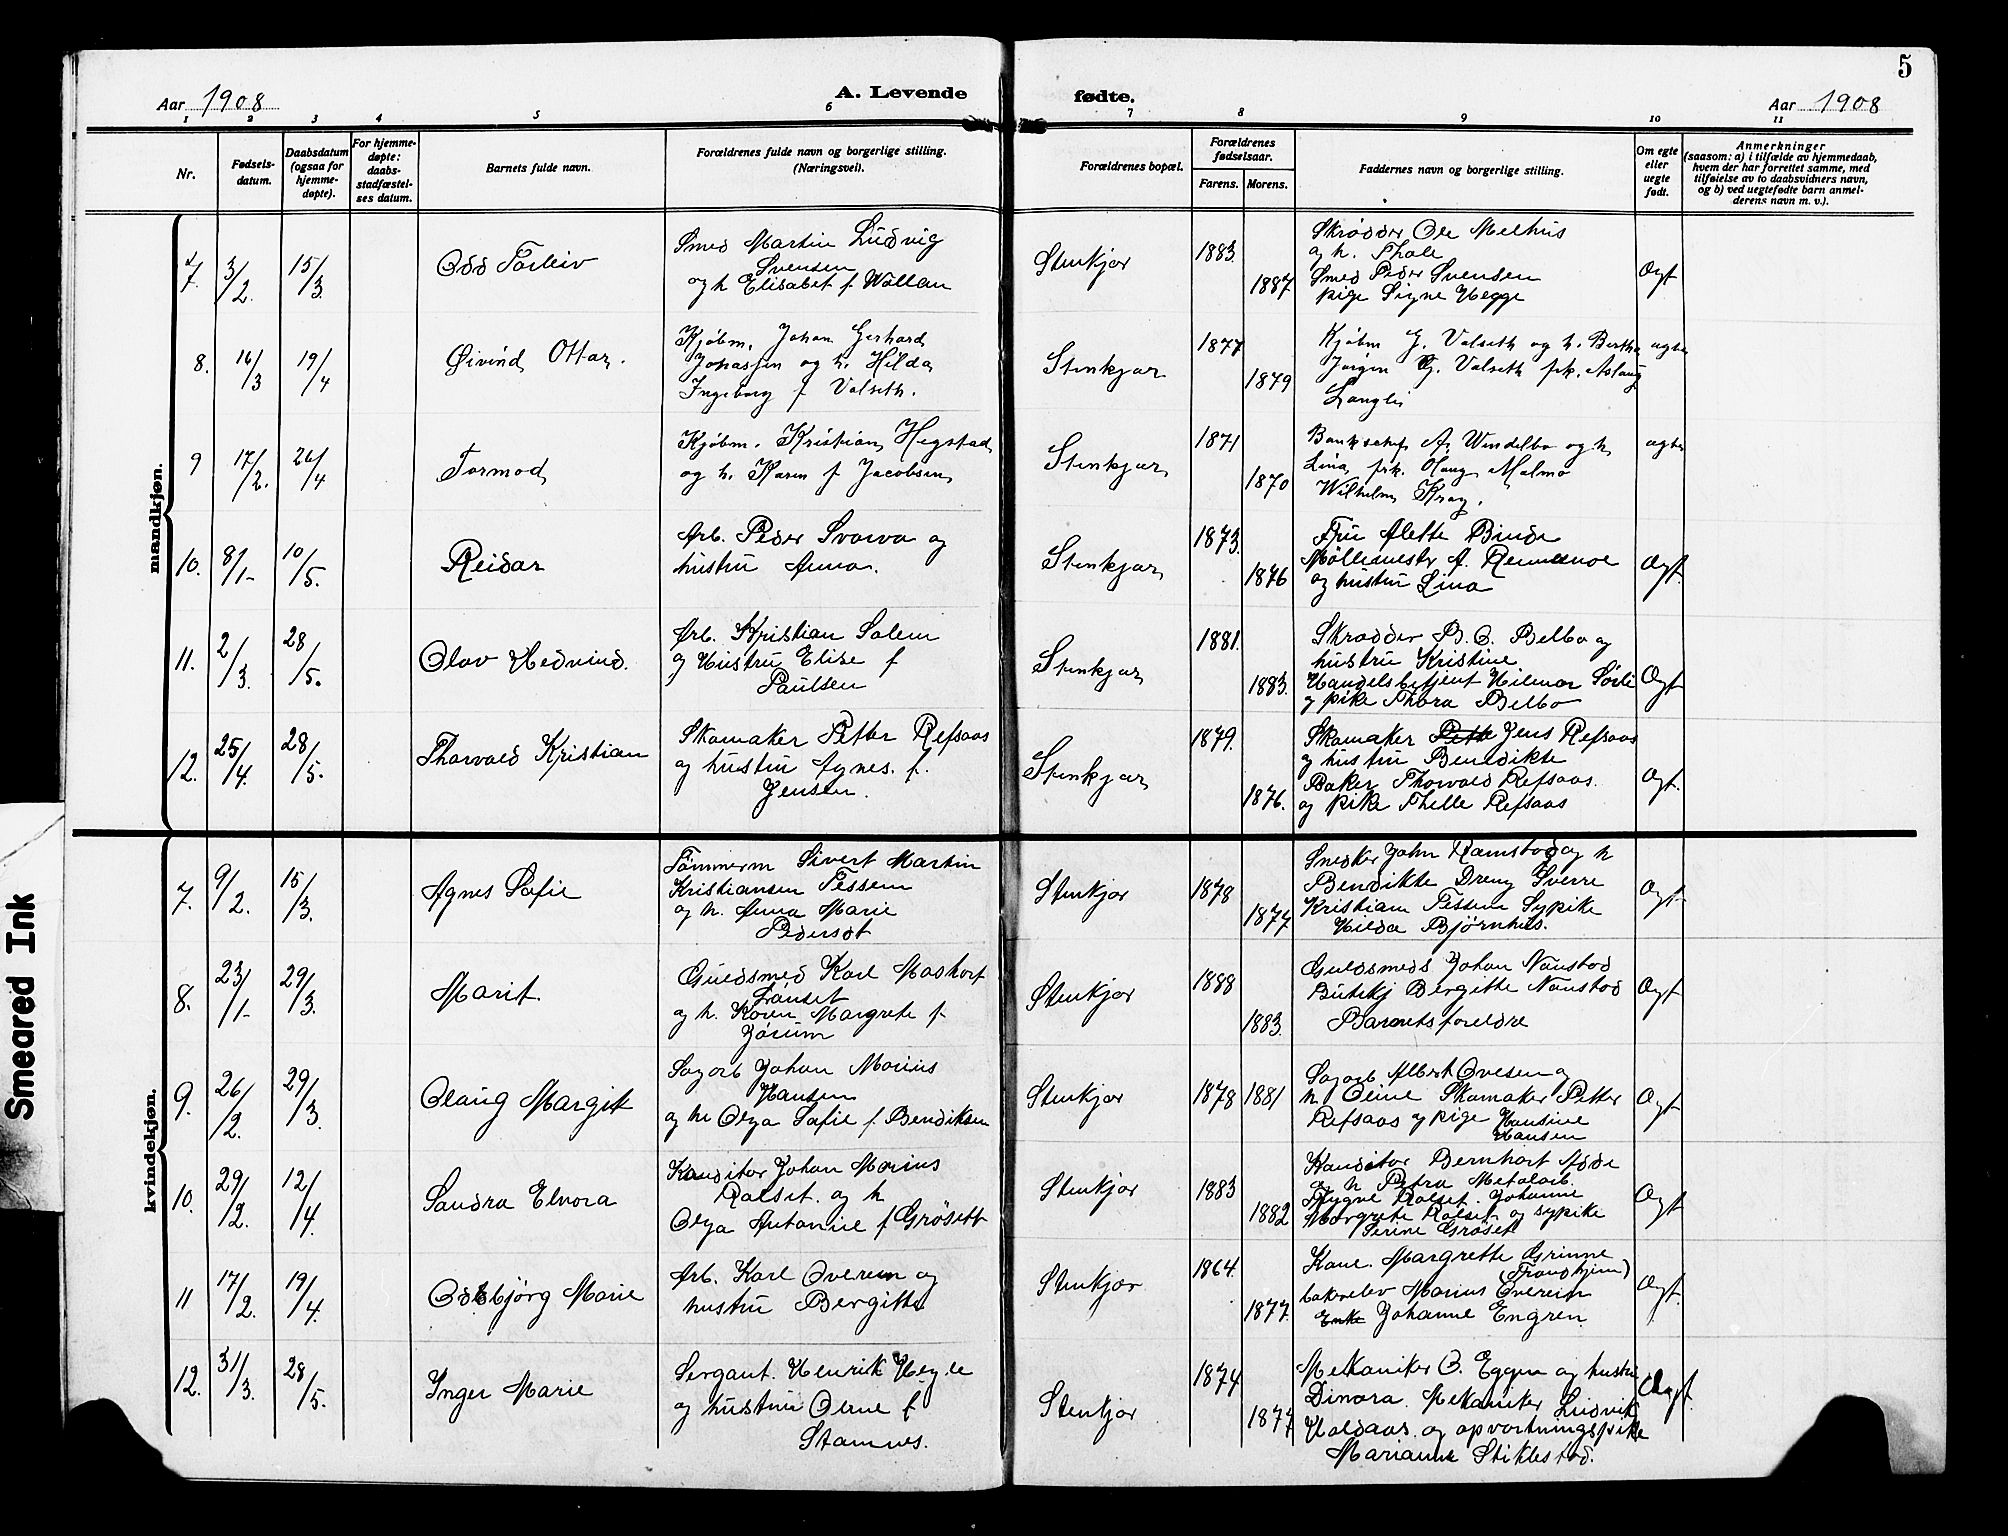 5
Aar 1908
A. Levende
fødte.
Aar 1908
1 2 3 4 5 6 7 8 9 10 11
Nr.
Fødsels-
datum.
Daabsdatum
(ogsaa for
hjemme-
døpte).
For hjemme-
døpte:
daabs-
stadfæstel-
ses datum.
Barnets fulde navn.
Forældrenes fulde navn og borgerlige stilling.
(Næringsvei).
Forældrenes bopæl.
Forældrenes
fødselsaar.
Farens. Morens.
Faddernes navn og borgerlige stilling.
Om egte
eller
uegte
født.
Anmerkninger
(saasom: a) i tilfælde av hjemmedaab,
hvem der har forrettet samme, med
tilføielse av to daabsvidners navn,
og b) ved uegtefødte barn anmel-
derens navn m. v.).
mandkjøn.
7. 3/2. 15/3.
Odd Torleiv
Smed Martin Ludvig
Svensen
og h Elisabet f. Wollan
Stenkjær
1883.
1887.
Skrædder Ole Melhus
og h. Thale
Smed Peder Svensen
pige Signe Hegge
Ægt
8. 16/3 19/4
Øivind Ottar.
Kjøbm. Johan Gerhard
Jonassen og h. Hilda
Ingeborg f Valseth.
Stenkjær
1877
1879
Kjøbm G. Valseth og h. Bertha
Jørgen G. Valseth frk. Aslaug
Langli
ægte
9 17/2. 26/4
Tormod
Kjøbm. Kristian Hegstad
og h. Karen f Jacobsen
Stenkjær
1871
1870
Bankchef A. Windelbo og h
Lina, frk. Olaug Malmo
Wilhelm Krog.
ægte
10. 8/1- 10/5.
Reidar
Arb. Peder Svarva og
hustru Anna.
Stenkjær
1873.
1876
Fru Alette Binde
Møllemestr A. Remmenoe
og hustru Lina
Ægt.
11. 2/3. 28/5.
Olav Hedvind.
Arb. Kristian Solem
og Hustru Elise f
Paulsen
Stenkjær
1881.
1883.
Skrædder B. O. Belbo og
hustru Kristine
Handelsbetjent Hilmar Sørli
og pike Thora Belbo
Ægt
12. 25/4. 28/5.
Thorvald Kristian
Skomaker Petter Refsaas
og hustru Agnes. f.
Jensen.
Stenkjær
1879.
1876.
Skomaker Jens Refsaas
og hustru Benedikte
Baker Thorvald Refsaas.
og pike Thelle Refsaas
Ægt.
kvindekjøn.
7. 9/2. 15/3.
Agnes Sofie
Tømmerm Sivert Martin
Kristiansen Tessem
og h. Anna Marie
Pedersdt
Stenkjær
1878
1877
Snedker John Ramstad og h
Bendikte Dreng Sverre
Kristian Tessem Sypike
Hilda Bjørnhus.
Ægt
8. 23/1- 29/3.
Marit.
Guldsmed Karl
og h. Karen Margrete f
Jørum
Stenkjær
1888
1883.
Guldsmeds Johan Naustad
Butikj Bergitte Naustad
Barnets foreldre
Ægt
9. 26/2. 29/3.
Olaug Margit
Sagarb Johan Marius
Hansen
og h. Olga Sofie f. Bendiksen
Stenkjær
1878 1881
Sagarb Albert Ovesen og
h. Oline Skomaker Petter
Refsaas og pige Hansine
Hansen
Ægt
10. 29/2. 12/4.
Sandra Elnora
Konditor Johan Marius
Rolset. og h
Olga Antonie f Grøsett
Stenkjær
1883
1882
Konditor Bernhart Adde
og h Petra Metalarb.
Trygve Rolset. Johanne
Margrete Rolset og sypike
Serine Grøset
Ægt
11 17/2. 19/4.
Oddbjørg Marie
Arb. Karl Overein og
hustru Bergitte
Stenkjær
1864.
1877.
Kone. Margrette Grinne
(Trondhjem)
bakerelev Marius Overein
Enke Johanne Engren.
Ægt.
12. 31/3. 28/5.
Inger Marie
Sergant. Henrik Hegle
og hustru Oline f
Stamnes.
Stenkjær
1874
1877
Mekaniker O. Eggen og hustru
Dinora. Mekaniker Ludvik
Haldaas. og opvartningspike
Marianne Stiklestad.
Ægt.
Smeared Ink